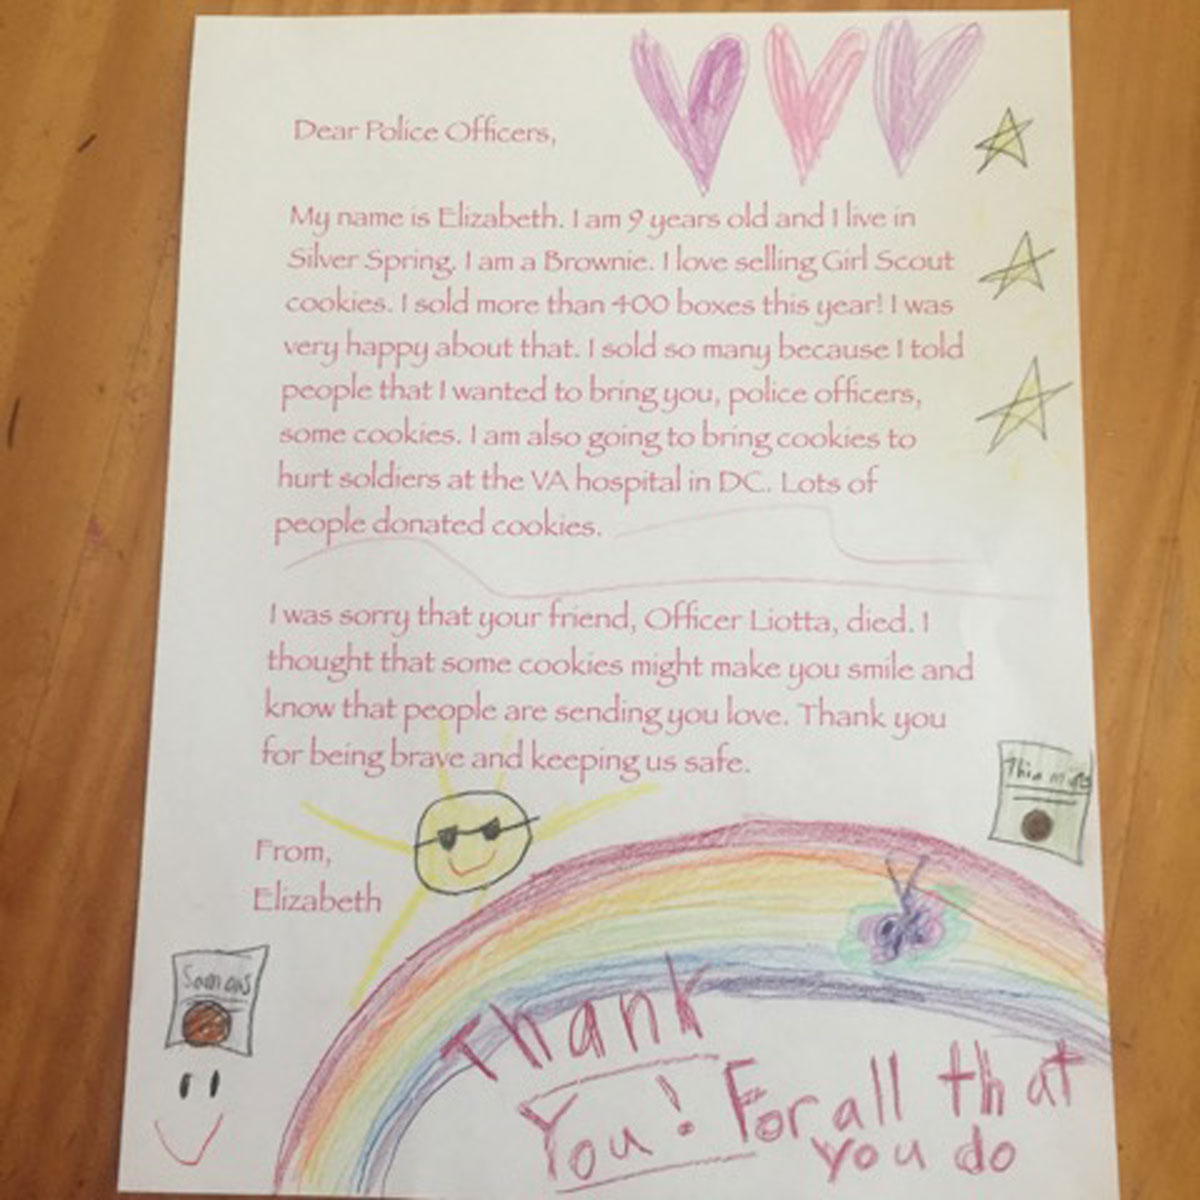 Dear Police Officers,
My name is Elizabeth. I am 9 years old and I live in
Silver Spring. I am a Brownie. I love selling Girl Scout
cookies. I sold more than 400 boxes this year! I was
very happy about that. I sold so many because I told
people that I wanted to bring you, police officers,
some cookies. I am also going to bring cookies to
hurt soldiers at the VA hospital in DC. Lots of
people donated cookies.
I was sorry that your friend, Officer Liotta, died. I
thought that some cookies might make you smile and
know that people are sending you love. Thank you
for being brave and keeping us safe.
From,
Elizabeth
Thin mints
Somoas
Thank
You! For all that
you do